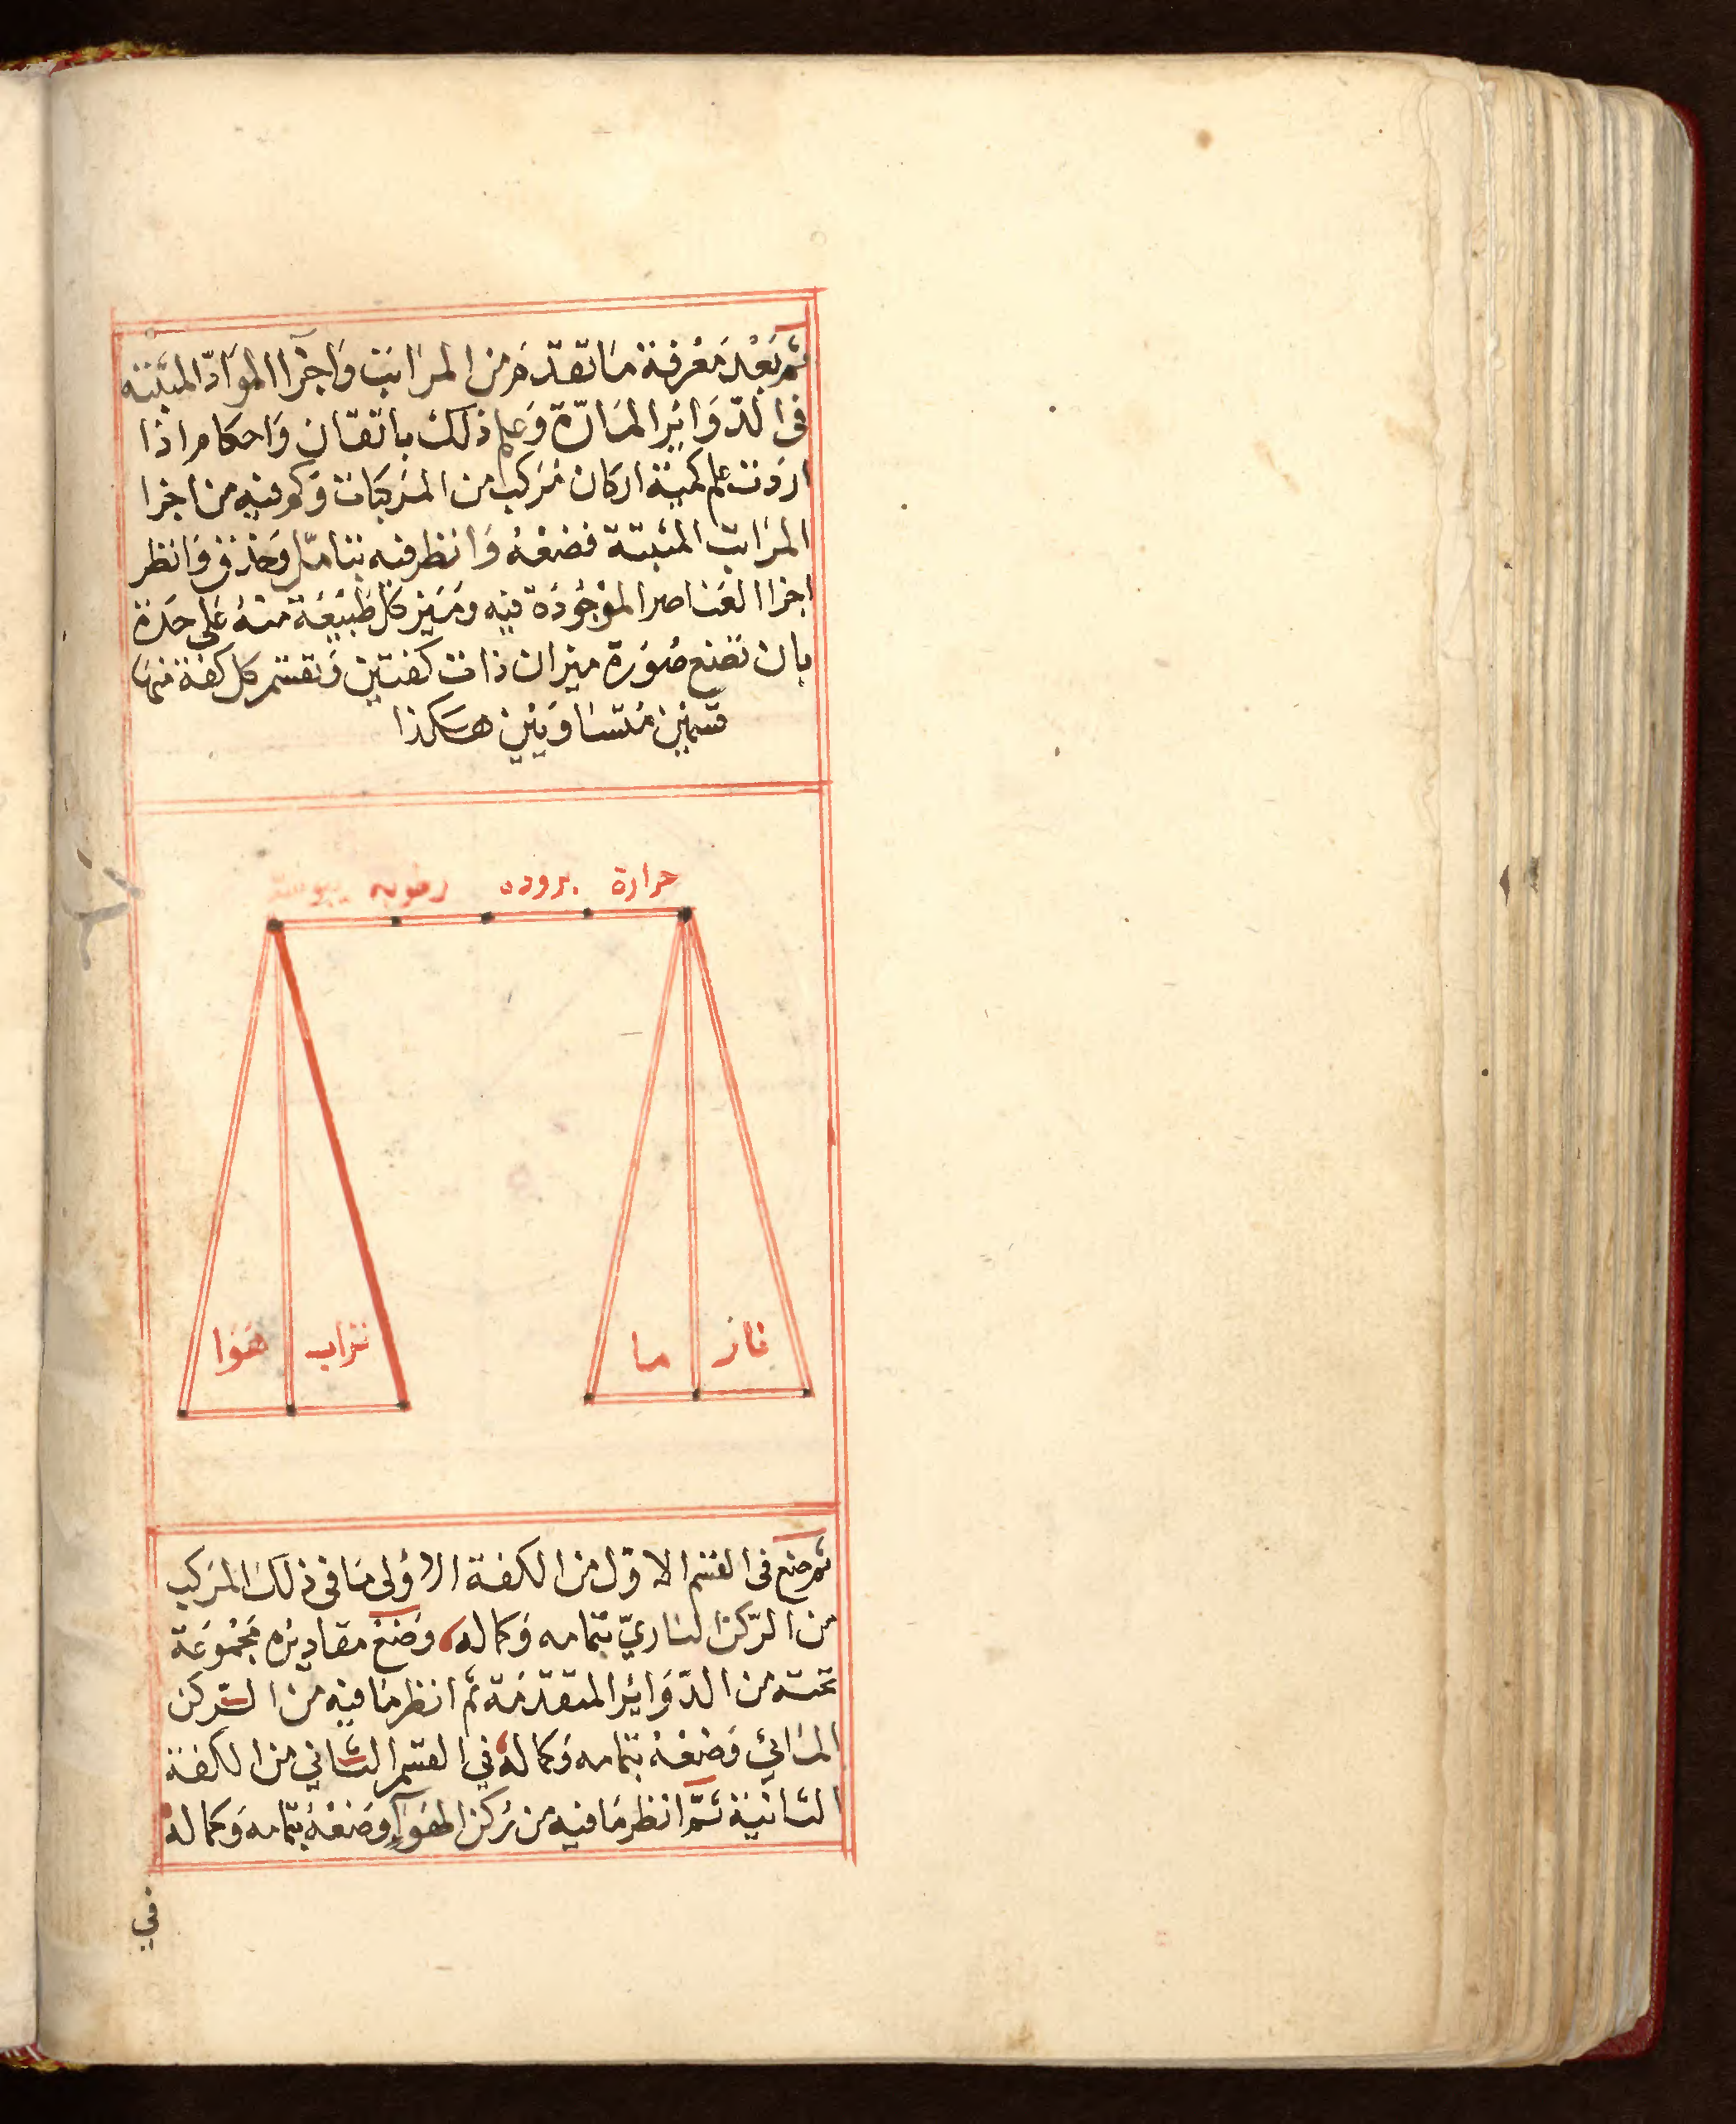 ثم بَعْدَ مَعْرفة مَا تقدّم من المراتب وَاجزآ الموَادّ المبيّنه
فى الدّوَايْر المَارّة وَعلم ذلك باتقان وَاحكام اذا
اردت علم كمية اركان مُركب من المرَكبَات وَكم فيه من اجزا
المرَاتب المثبتة فضعْهُ وَانظر فيه بتامّل وَحذق وَانظر
اجزا العَناصر الموْجُودَة فيه ومَيّز كل طَبيْعَة منهُ عَلى حَدة
بان تصْنع صُوَرة ميزان ذات كفتين وَتقسّم كل كفة منها
قسمَيْن مُتسَاويَيْن هٰكذا
حرارة بروده رطوبه يبوسة
نار ما تراب هَوَا
ثم ضع فى القسْم الاوّل من الكفة الاوْلى مَا فى ذلك المرَكب
من الرّكن النّاريّ بتمامه وَكماله وضَعْ مقاديْرَه مَجْمُوعَة
تحته من الدّوَايْر المتقدّمَة ثم انظر مَا فيْه من الرّكن
المائيّ وَضعْهُ بتمامه وَكماله في القسْم الثّاني من الكفة
الثانيَة ثمّ انظر مَا فيه من رُكن الهوَآءِ وَضَعْهُ بتمامه وَكماله
في